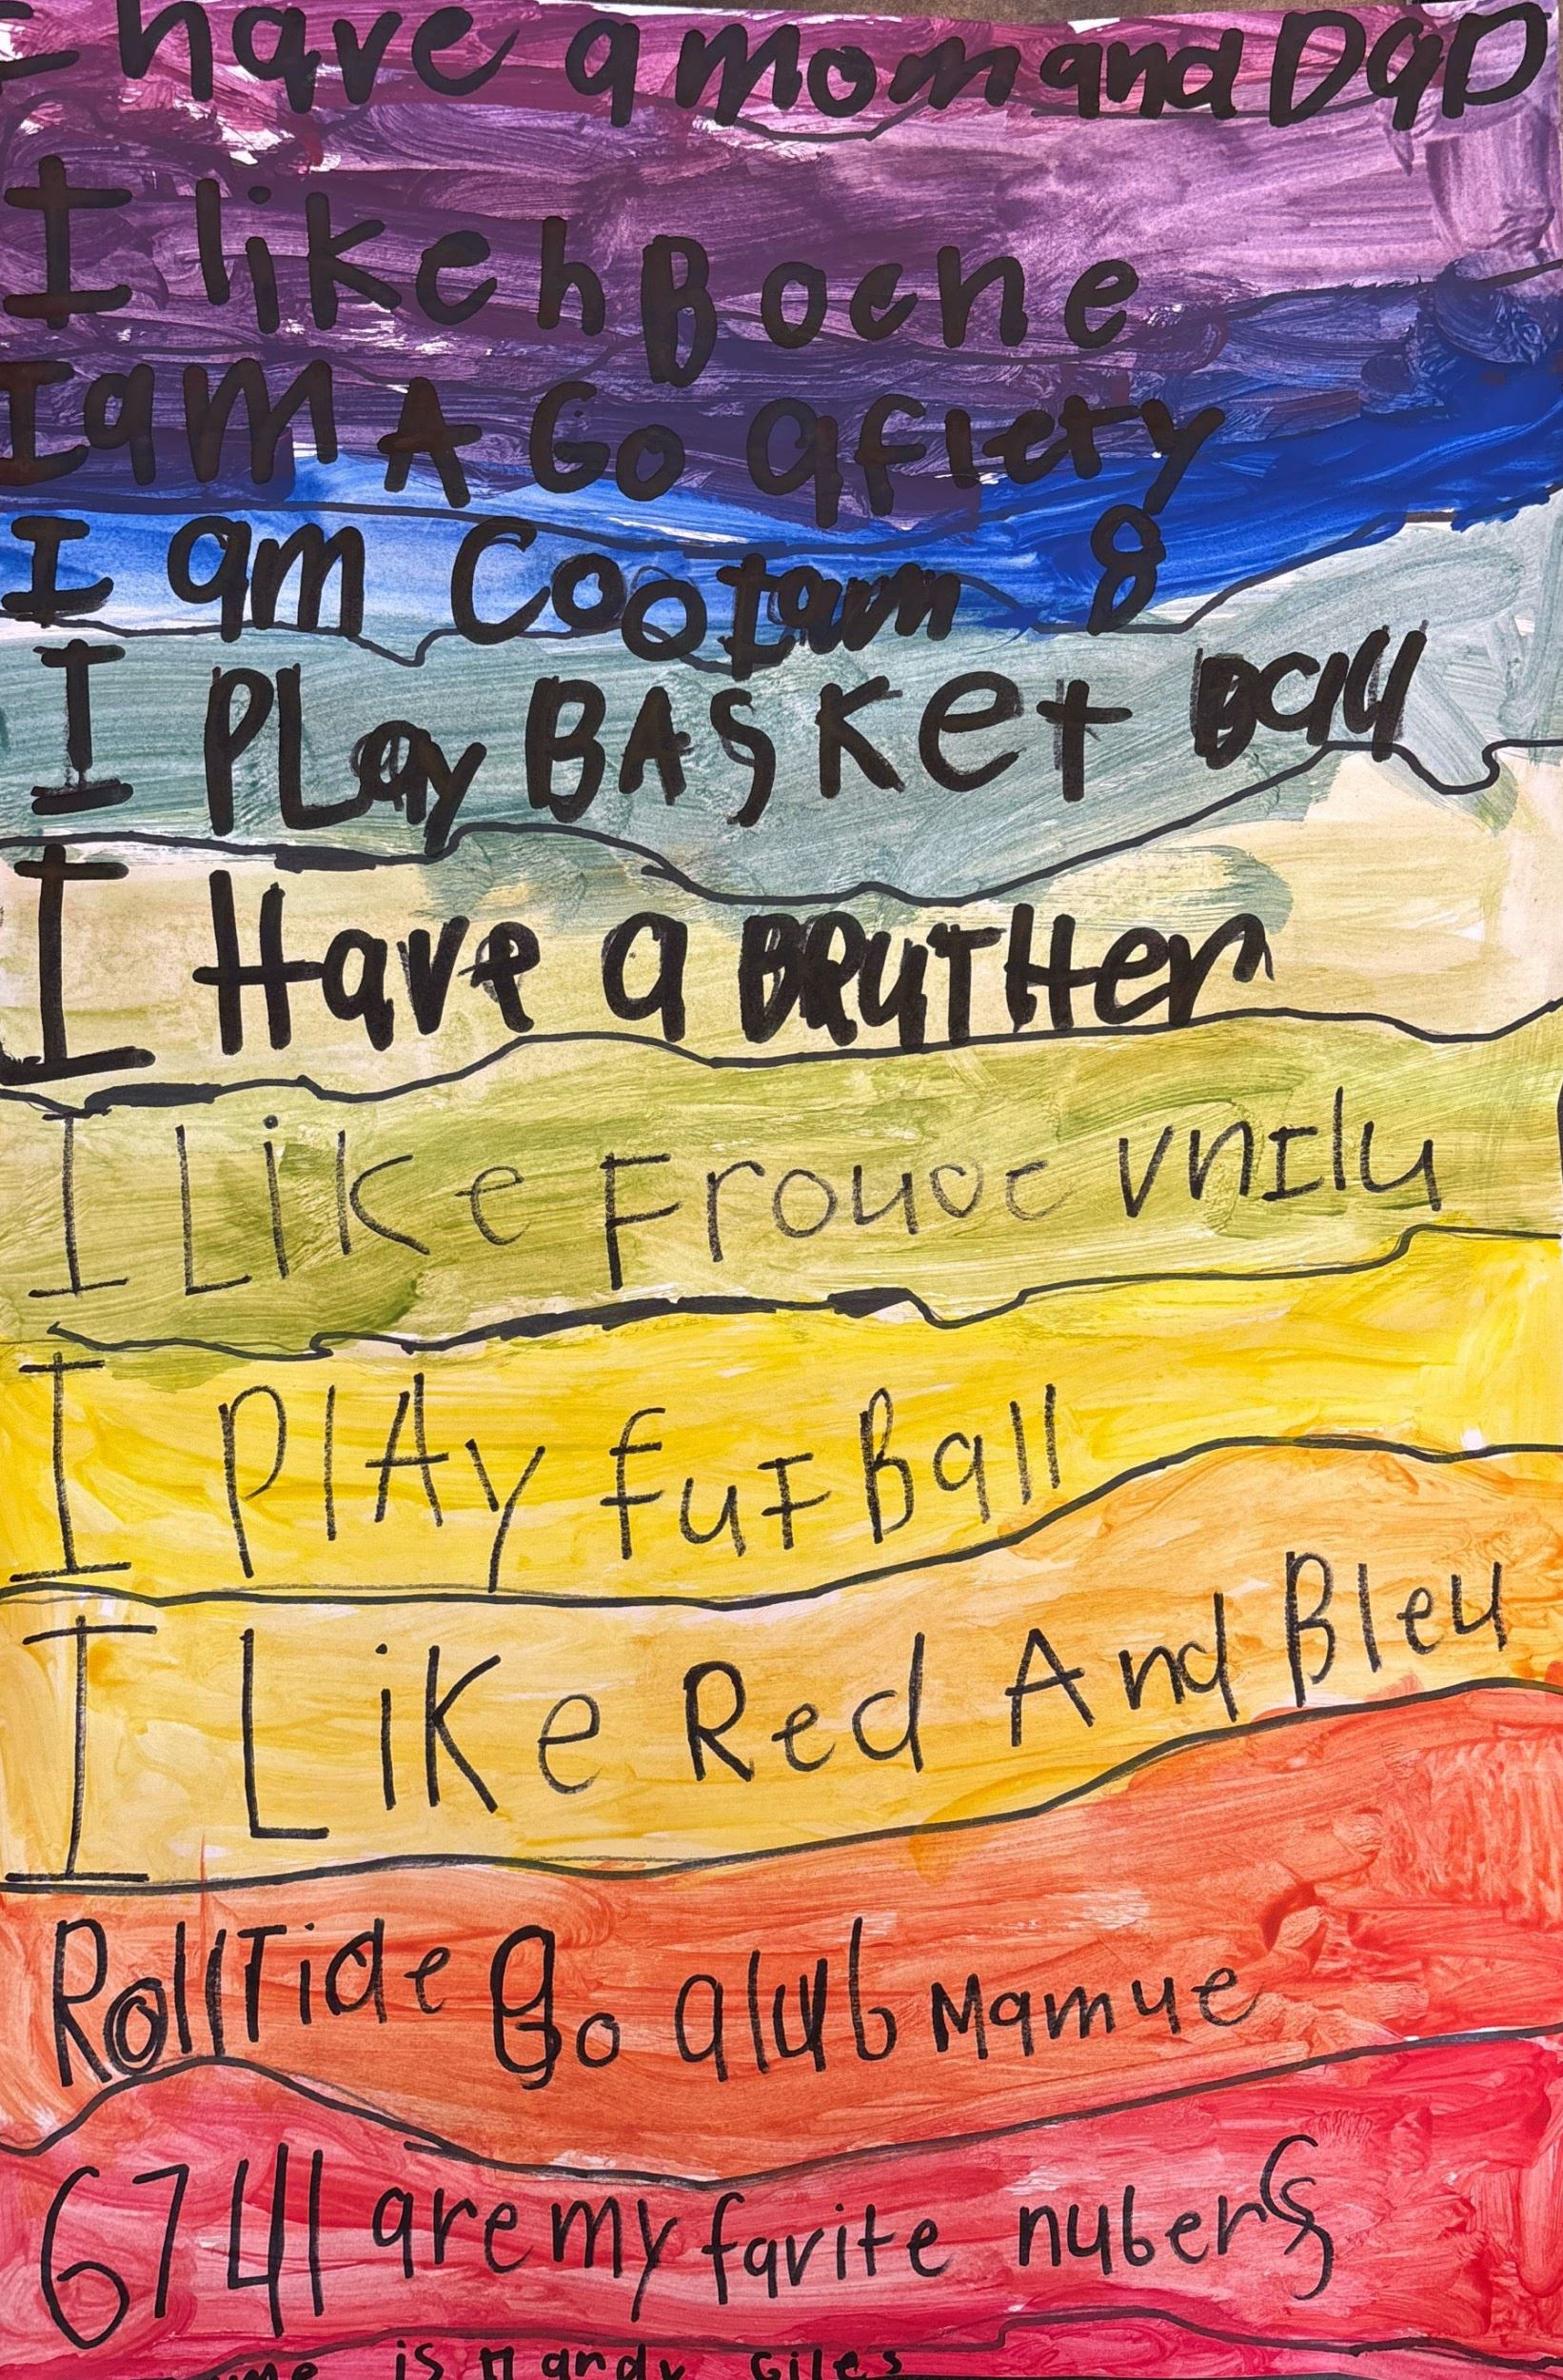 I have a mom and DaD
I like h Bocne
I am A Go aflety
I am Coo I am 8
I PLay BASKet Ball
I Have a BRUTHer
I Like Frouoc vnIlu
I PlAy fuFBall
I LiKe Red And Bleu
Roll Tide Go alub Mamue
67 41 are my favite nubers
is Giles